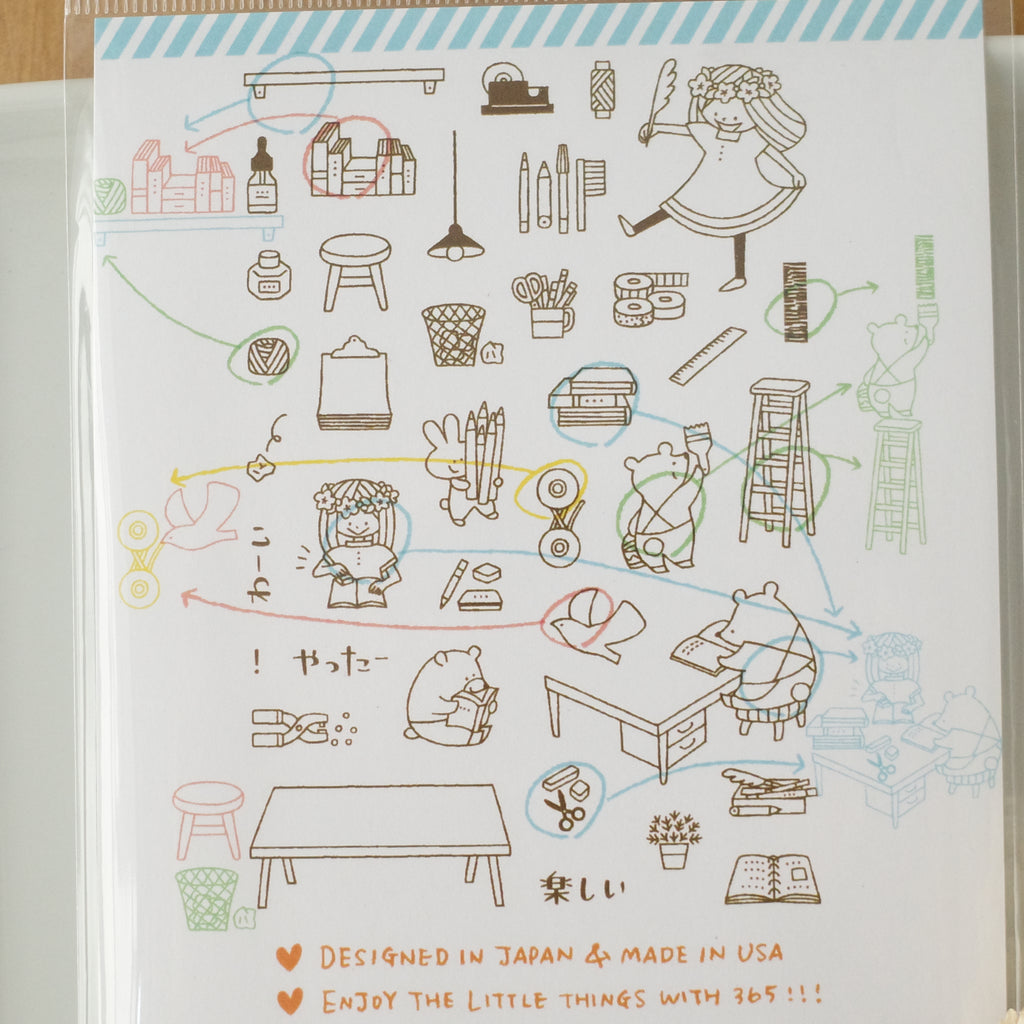 わーい
! やったー
楽しい
DESIGNED IN JAPAN & MADE IN USA
ENJOY THE LITTLE THINGS WITH 365!!!